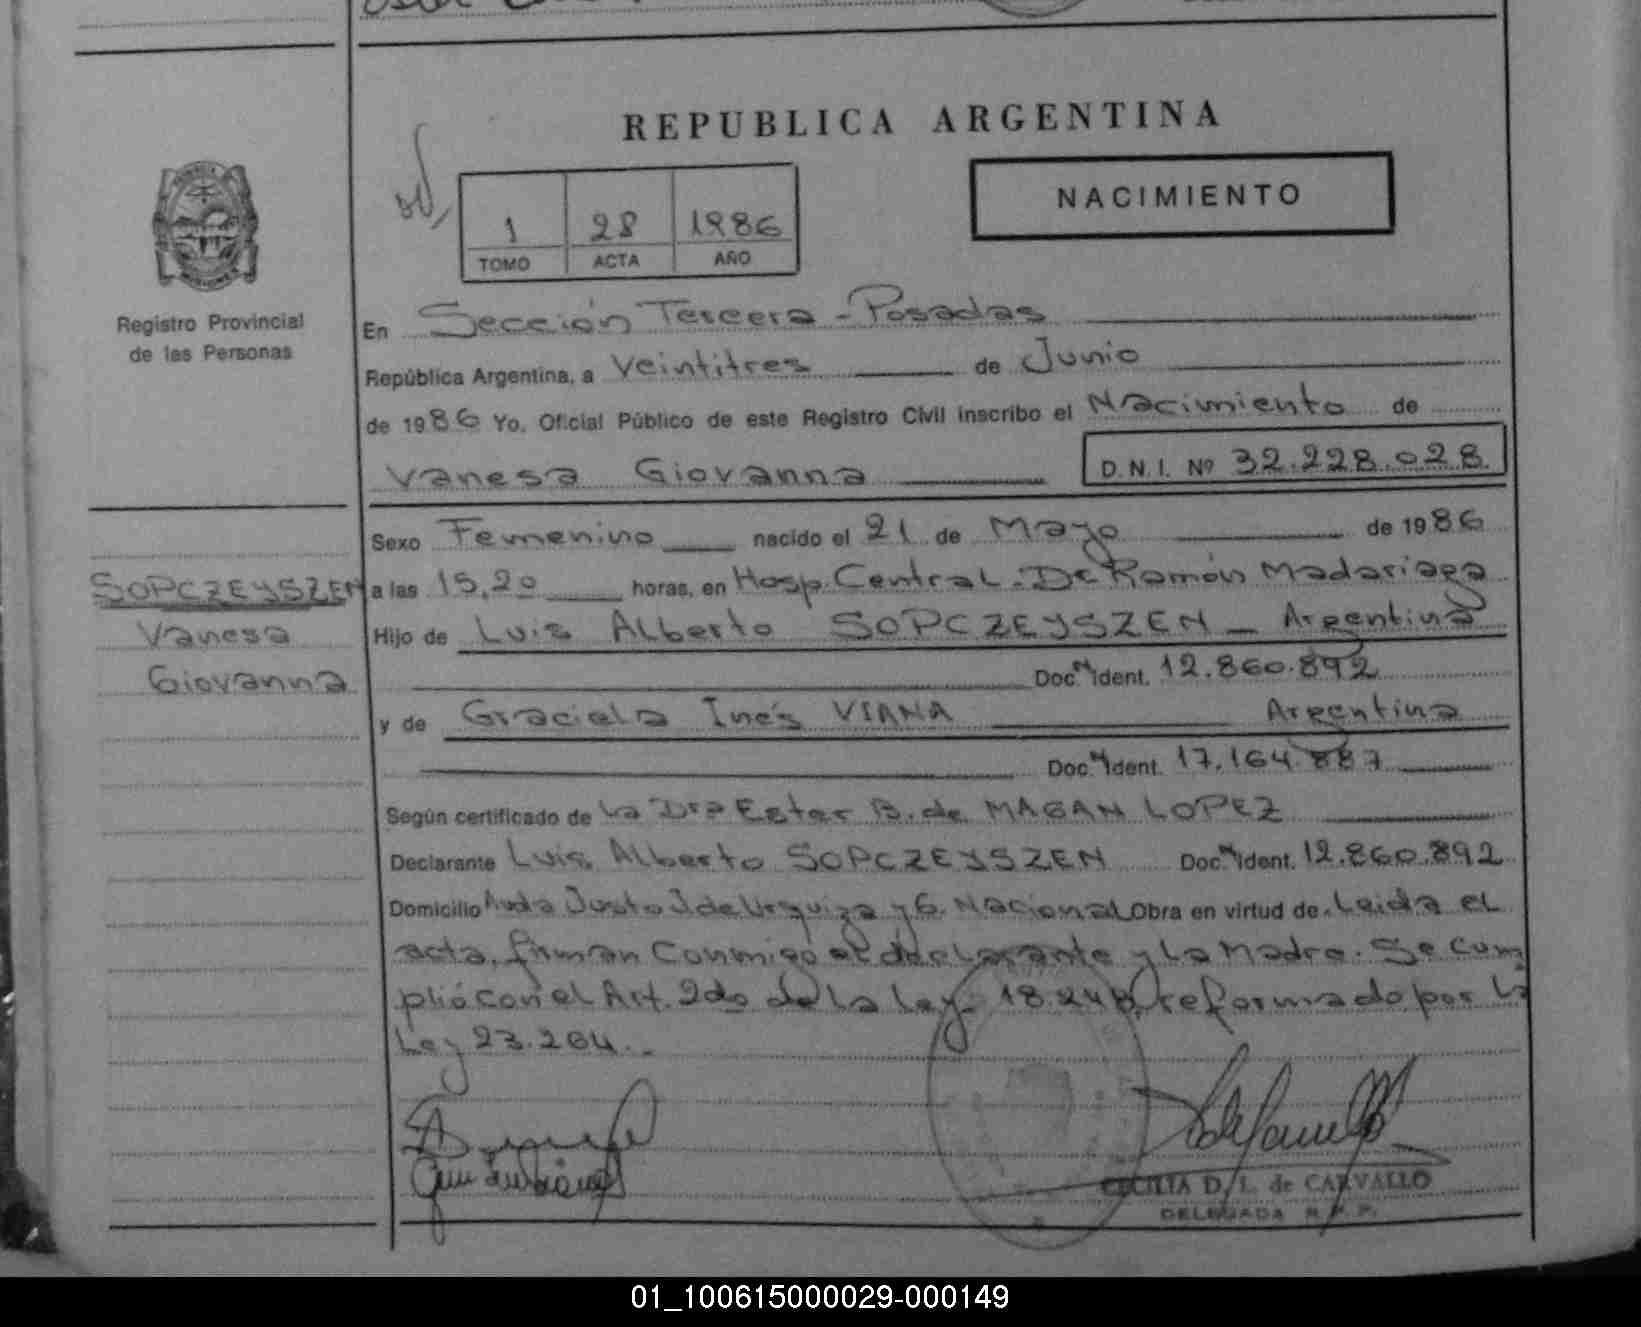 REPUBLICA ARGENTINA
NACIMIENTO
1 28 1986
TOMO ACTA AÑO
Registro Provincial
de las Personas
En Sección Tercera - Posadas
República Argentina, a Veintitres de Junio
de 1986 Yo, Oficial Público de este Registro Civil inscribo el Nacimiento de
Vanesa Giovanna D.N.I. Nº 32.228.028
Sexo Femenino nacido el 21 de Mayo de 1986
SOPCZEYSZEN
Vanesa
Giovanna
a las 15,20 horas, en Hosp. Central. Dr Ramón Madariaga
Hijo de Luis Alberto SOPCZEYSZEN - Argentina
Doc. N Ident. 12.860.892
y de Graciela Inés VIANA Argentina
Doc. N Ident. 17.164.887
Según certificado de La Dra Ester B. de MAGAN LOPEZ
Declarante Luis Alberto SOPCZEYSZEN Doc. N Ident. 12.860.892
Domicilio Avda Justo J de Urquiza y G. Nacional Obra en virtud de Leida el
acta, firman Conmigo el declarante y La Madre. Se cum
plió con el Art. 2do de La Ley 18.248, reformado por La
Ley 23.264.-
CECILIA D. L. de CARVALLO
DELEGADA R. P. P.
01_100615000029-000149